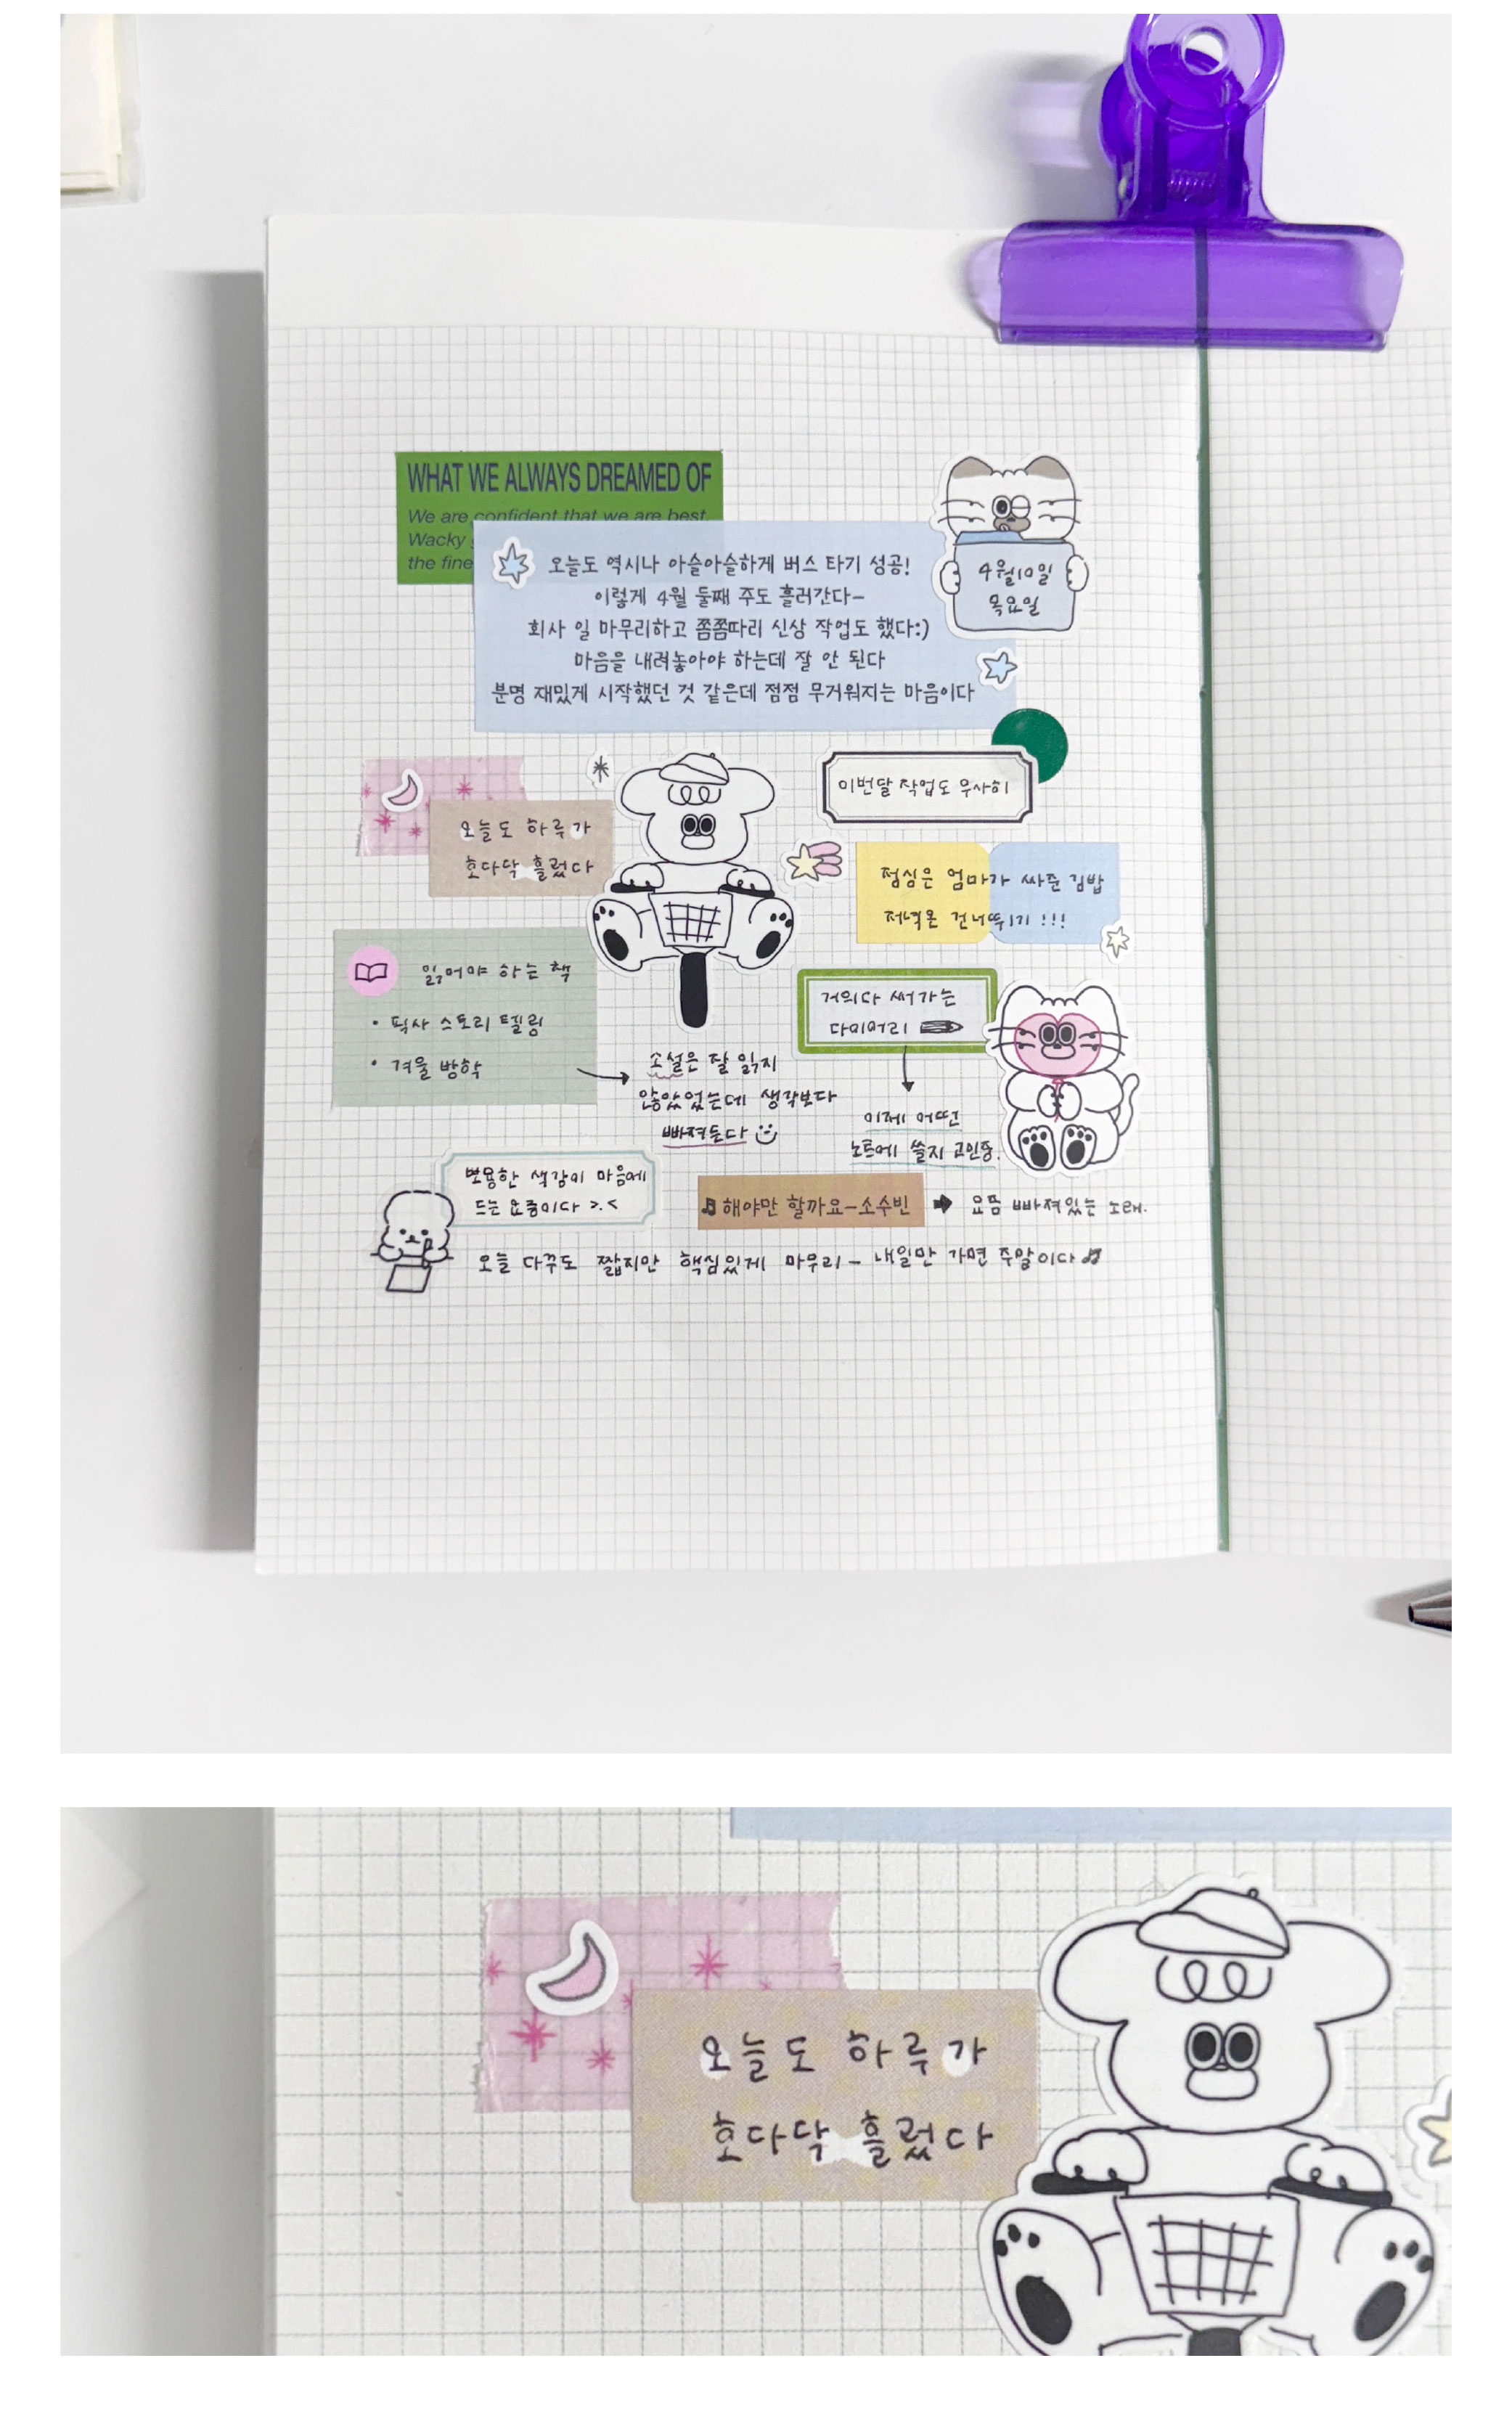 WHAT WE ALWAYS DREAMED OF
We are confident that we are best
Wacky
the fine
4월10일
목요일
오늘도 역시나 아슬아슬하게 버스 타기 성공!
이렇게 4월 둘째 주도 흘러간다-
회사 일 마무리하고 쫌쫌따리 신상 작업도 했다:)
마음을 내려놓아야 하는데 잘 안 된다
분명 재밌게 시작했던 것 같은데 점점 무거워지는 마음이다
오늘도 하루가
호다닥 흘렀다
이번달 작업도 무사히
점심은 엄마가 싸준 김밥
저녁은 건너뛰기!!!
읽어야 하는 책
• 픽사 스토리 텔링
• 겨울 방학
소설은 잘 읽지
않았었는데 생각보다
빠져든다
거의다 써가는
다이어리
이제 어떤
노트에 쓸지 고민중.
뽀용한 색감이 마음에
드는 요즘이다 >.<
♫ 해야만 할까요-소수빈 ➡ 요즘 빠져있는 노래.
오늘 다꾸도 짧지만 핵심있게 마무리- 내일만 가면 주말이다♫
오늘도 하루가
호다닥 흘렀다